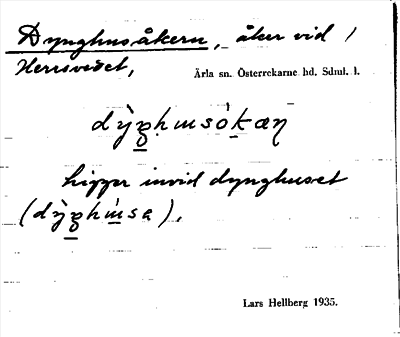 Dynghusåkern, åker vid /
Herrsvedet, Ärla sn. Österrekarne hd. Sdml. l.
ligger invid dynghuset
Lars Hellberg 1935.